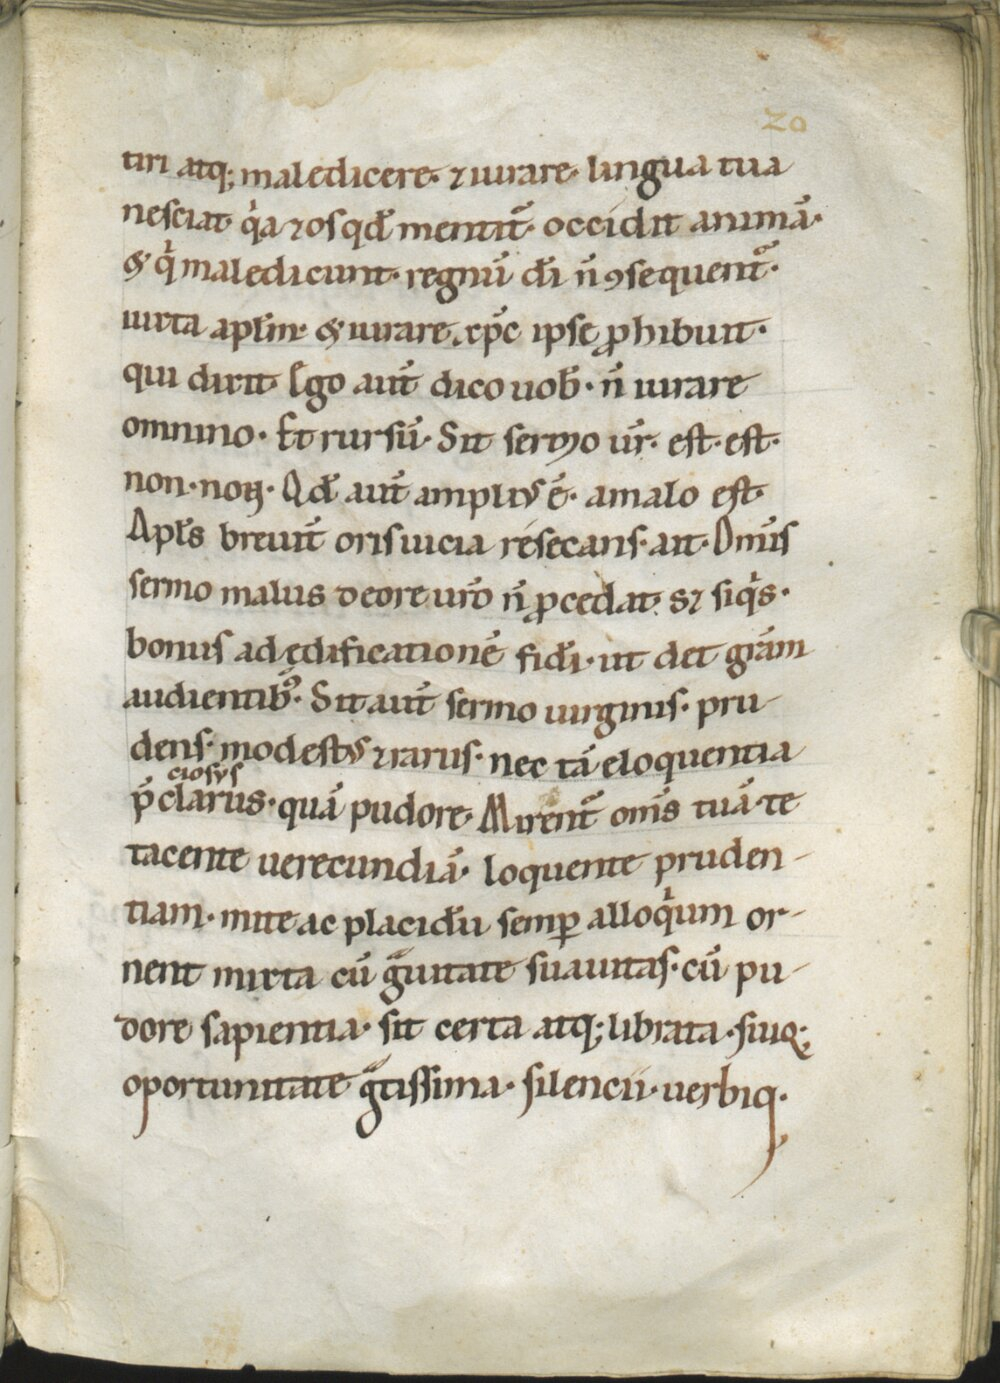 20
tiri atq; maledicere· ⁊ iurare· lingua tua
nesciat· q̇a ⁊ os qđ mentit᷑· occidit animā·
& q̇ maledicunt· regnū dī n̄ ꝯsequent᷑·
iuxta aplm̄· & iurare xp̄c ipse ꝓhibuit·
qui dixit· Ego aut̄ dico uob̄· n̄ iurare
omnino· Et rursū· Sit sermo ur̄· est· est·
non· non· Qđ aut̄ amplius ē· a malo est·
Apls̄ breuit̄ oris uicia resecans· ait· Om̄is
sermo malus de ore uro̅ n̄ ꝓcedat· s⁊ siq̇s·
bonus ad ędificationē fidei· ut det grām
audientib᷒· Sit aut̄ sermo uirginis· pru-
dens· modestus ⁊ rarus· nec tā eloquentia
ciosus
p̄clarus· quā pudore· Mirent᷑ om̄s tuā te
tacente uerecundiā· loquente pruden-
tiam· mite ac placidū semꝑ alloq̇um or-
nent mixta cū gᷓuitate suauitas· cū pu-
dore sapientia· sit certa atq; librata· suiq;
oportunitate gᷓtissima· silencii· uerbiq·